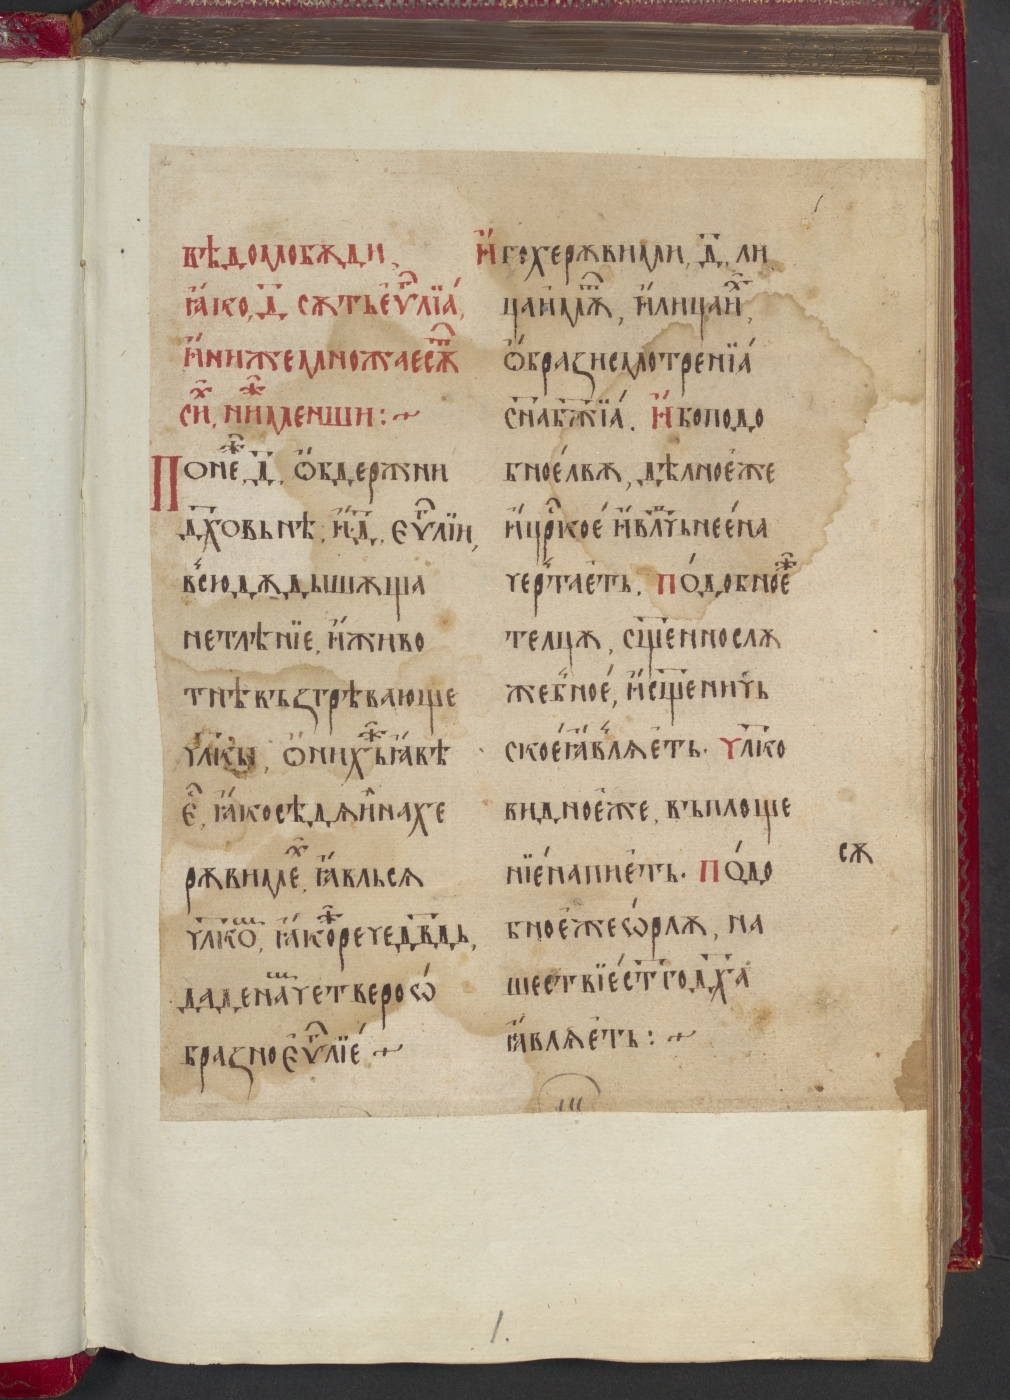 вѣдомобѫди,
ꙗ҆ко, д҃ сѫтьеѵⷢ҇лїа,
и҆нижемножаесⷮѫ
сиⷯ, ниⷤменши:~
Понеⷤ, д҃, ѻ҆бдержни
дх҃овьнѣ, и҆ д҃, еѵⷢ҇лїи,
вⸯсюдѫдышѫща
нетлѣнїе, и҆живо
тнѣкъꙁгрѣвающе
чл҃кы, ѻ҆нихъⷤꙗ҆вѣ
еⷭ҇, ꙗ҆косѣдѧи҆нахе
рѫвимеⷯ, ꙗ҆вльсѧ
чл҃кѡⷨ, ꙗ҆коⷤречедв҃дь,
даденаⷨчетверосѡ́
браꙁноеѵⷢ҇лїе ~
И҆гохерѫвими, д҃, ли
цаи҆мѫⷮ, и҆лицаиⷯ,
ѻ҆браꙁисмотренїа
сн҃абж҃їа. И҆боподо
бноельвѫ, дѣлноеже
и҆црⷭ҇кое и҆влⷣчьнеена
чертаеть. Подобноеⷤ
телцѫ, сщ҃еннослѫ
жебⸯное, и҆сщ҃еничь
скоеꙗ҆вⸯлѧеть. Чл҃ко
видноеже, въплоще
нїенапиеть. Подо
бноежесѡрлѫ, на
шествїест҃годх҃а
ꙗ҆влѧеть:~
сѫ
1.